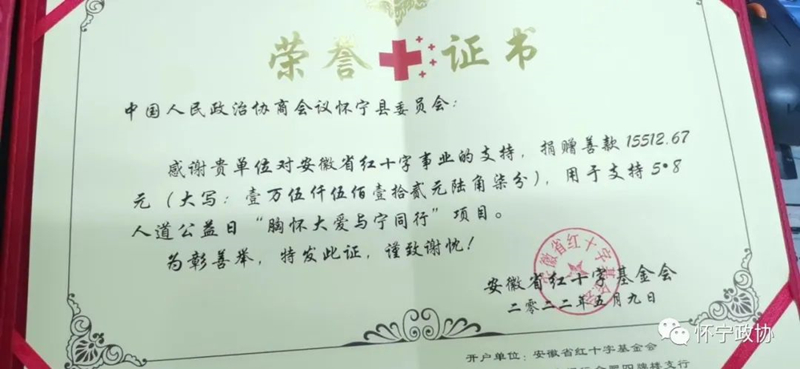 荣誉证书
中国人民政治协商会议怀宁县委员会：
感谢贵单位对安徽省红十字事业的支持，捐赠善款15512.67
元（大写：壹万伍仟伍佰壹拾贰元陆角柒分），用于支持5•8
人道公益日“胸怀大爱与宁同行”项目。
为彰善举，特发此证，谨致谢忱！
安徽省红十字基金会
二零二二年五月九日
安徽省红十字基金会
开户单位：安徽省红十字基金会
四牌楼支行
怀宁政协